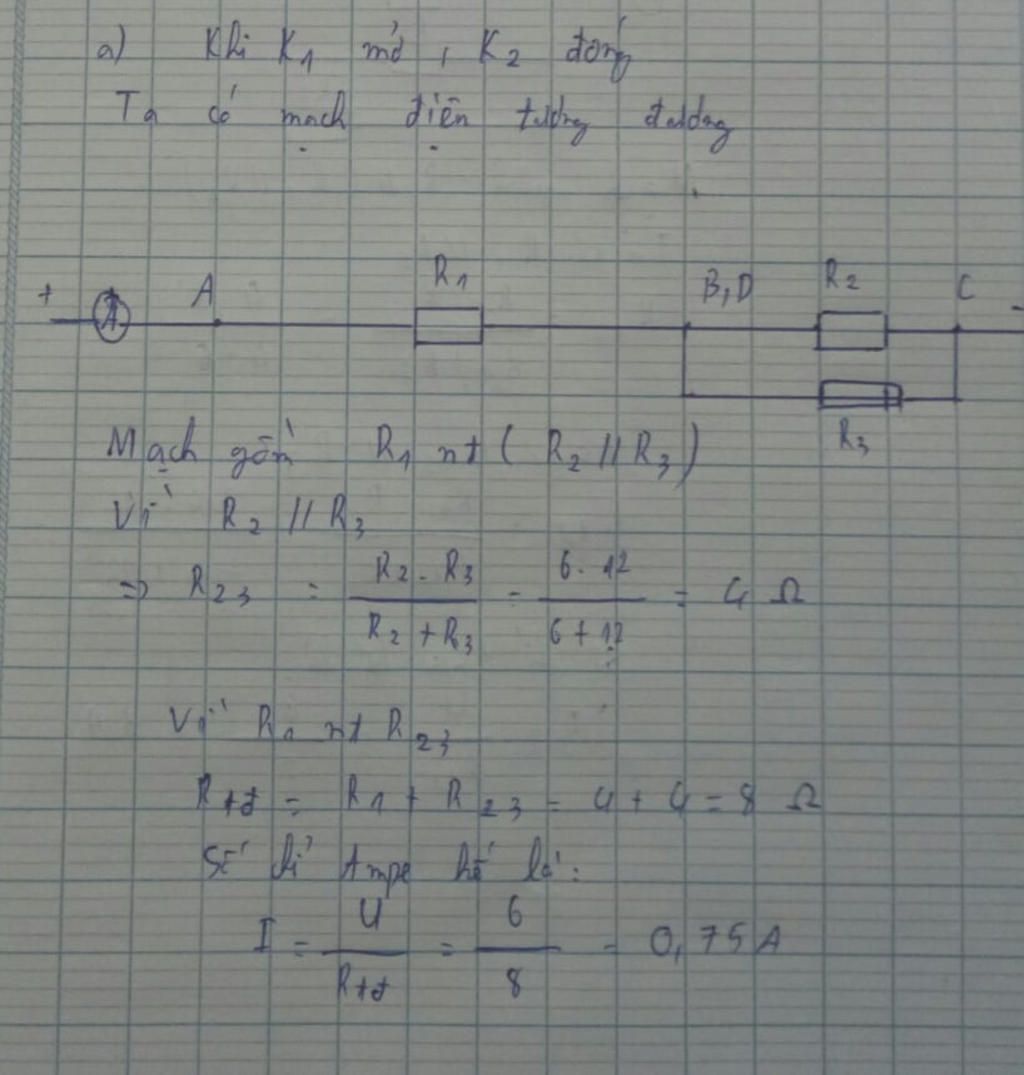 a) Khi K1 mở, K2 đóng
Ta có mạch điện tương đương
+ A A R1 B,D R2 C -
R3
Mạch gồm R1 nt (R2 // R3)
Vì R2 // R3
=> R23 = R2 . R3 / R2 + R3 = 6 . 12 / 6 + 12 = 4 Ω
Vì R1 nt R23
Rtđ = R1 + R23 = 4 + 4 = 8 Ω
Số chỉ Ampe kế là:
I = U / Rtđ = 6 / 8 = 0,75A